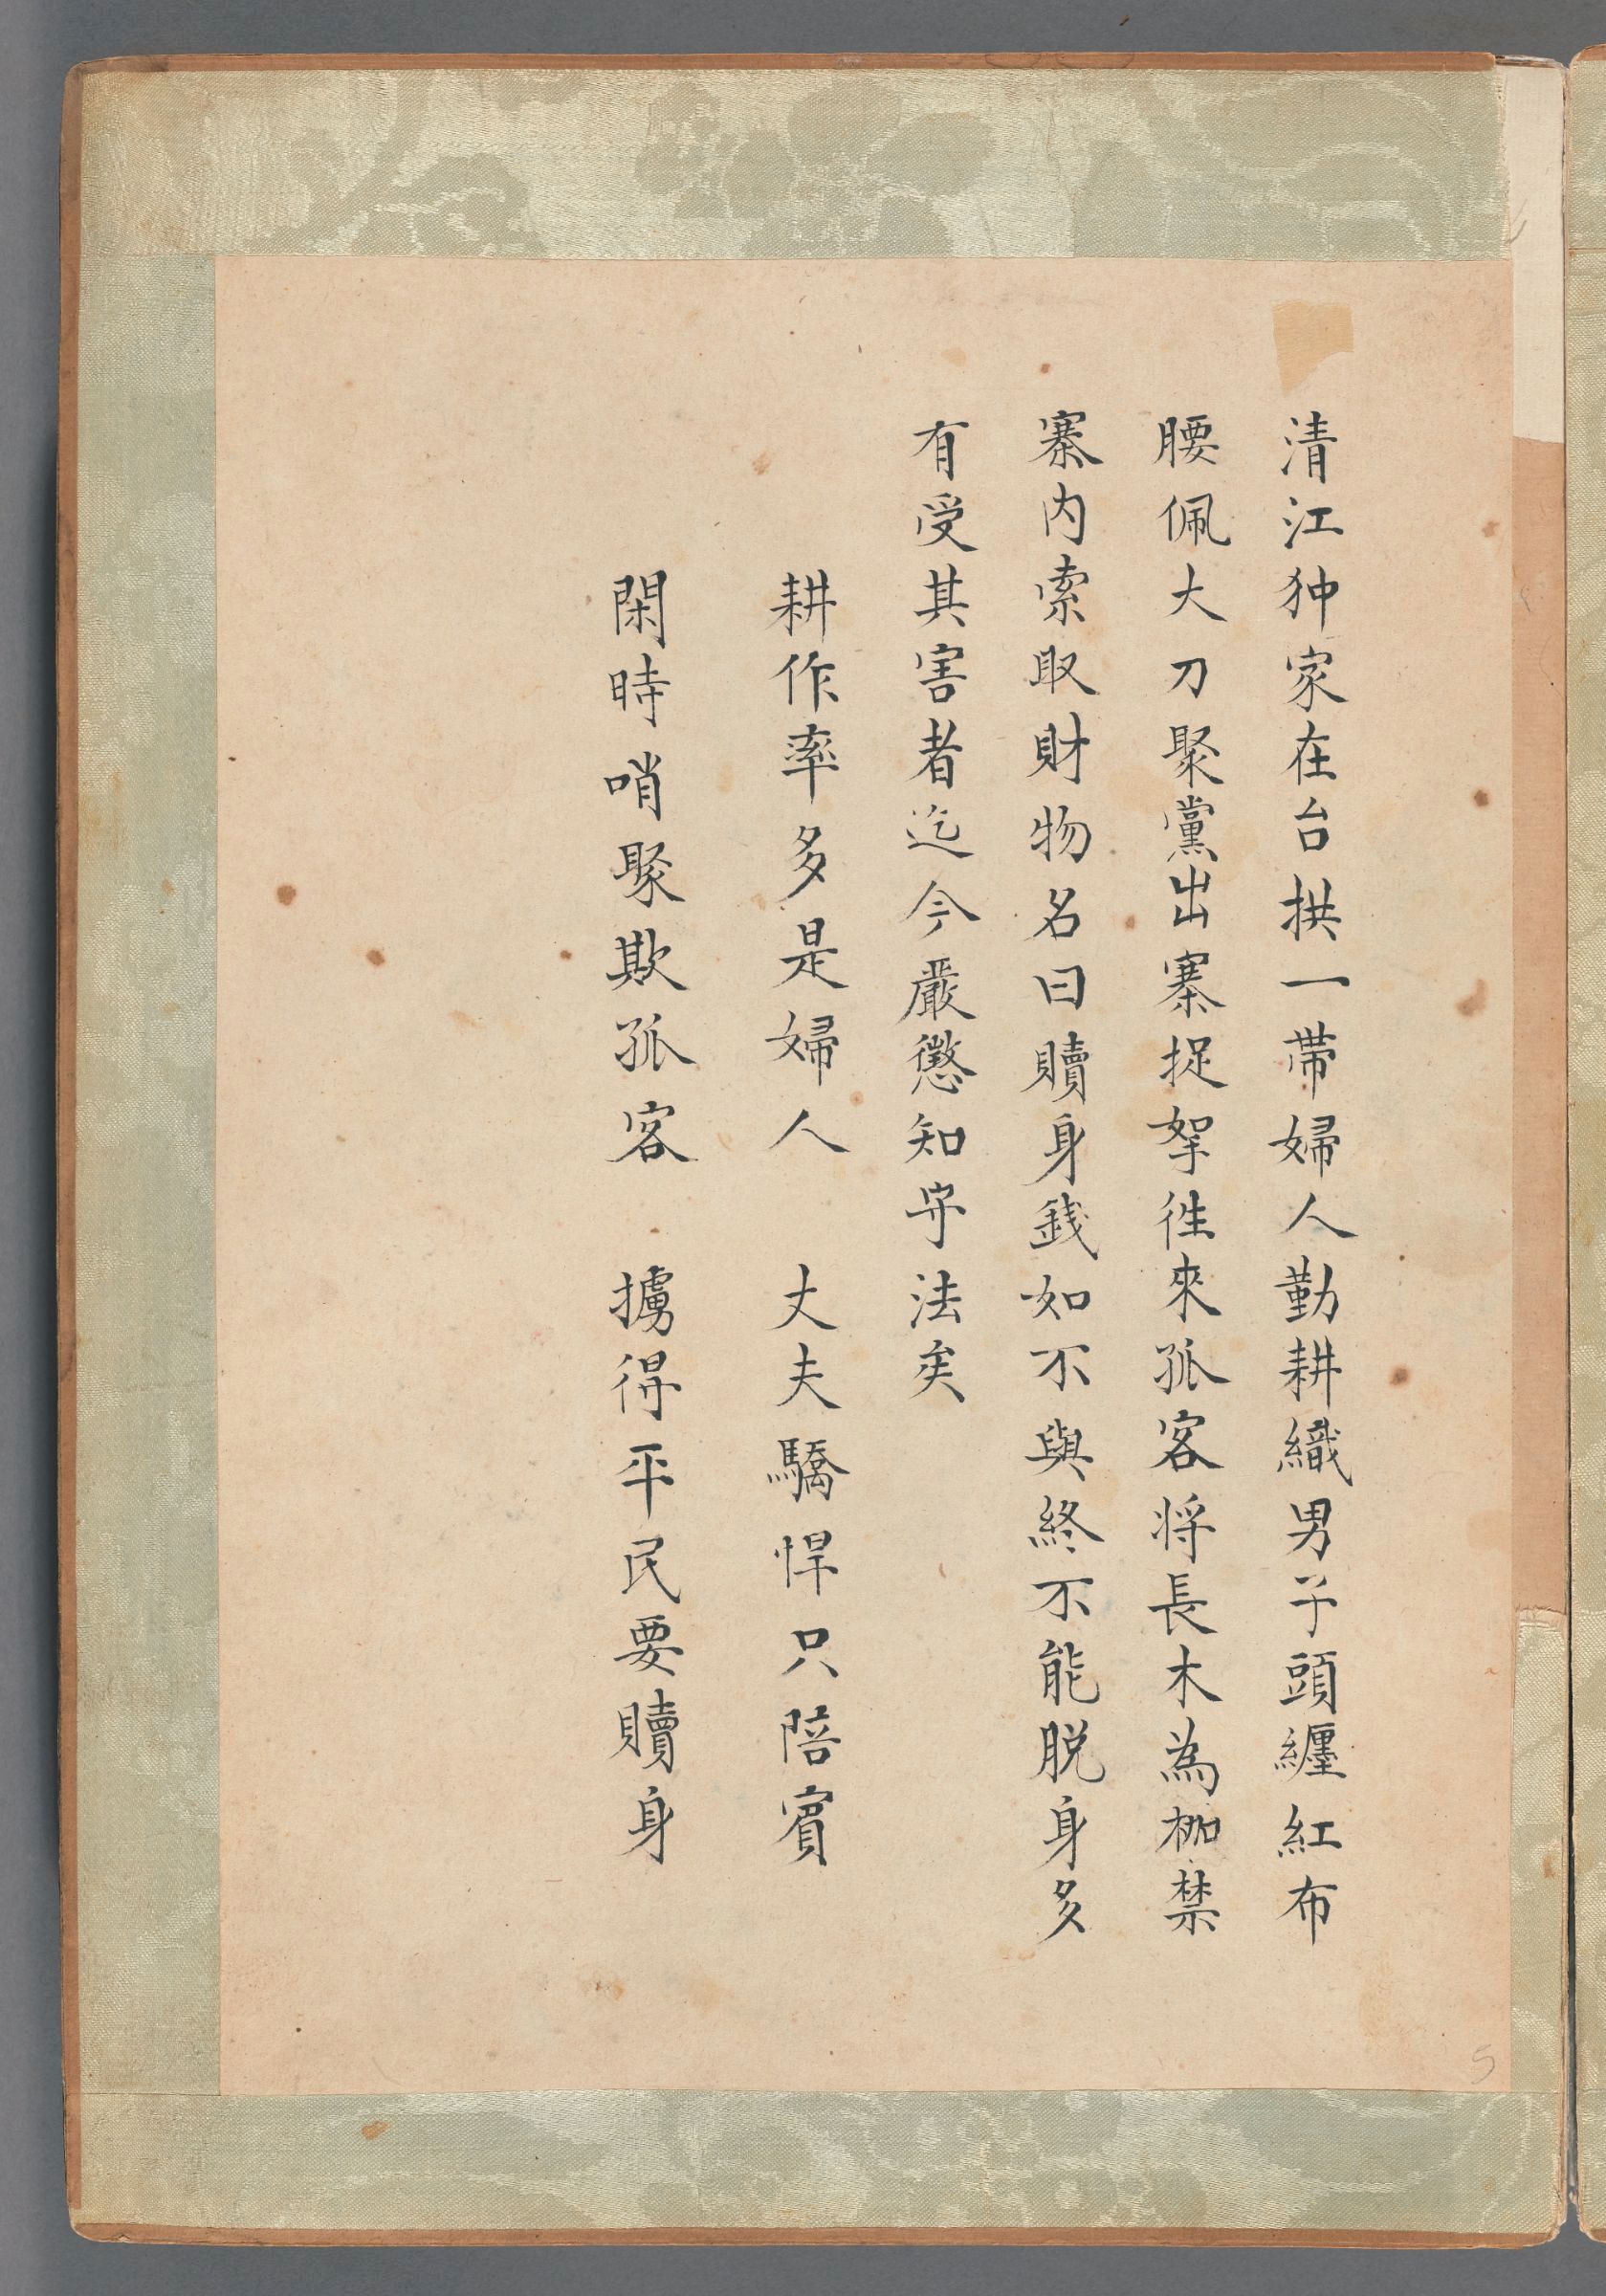 清江狆家在台拱一帶婦人勤耕織男子頭纏紅布
腰佩大刀聚黨出寨捉拏徃來孤客将長木為枷禁
寨内索取財物名曰贖身銭如不與終不能脱身多
有受其害者迄今嚴懲知守法矣
耕作率多是婦人　丈夫驕悍只陪賓
閑時哨聚欺孤客　擄得平民要贖身
5